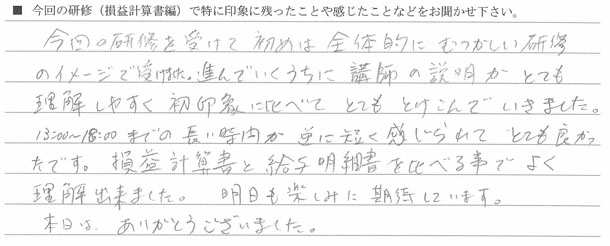 ■ 今回の研修（損益計算書編）で特に印象に残ったことや感じたことなどをお聞かせ下さい。
今回の研修を受けて初めは全体的にむつかしい研修
のイメージで受けました。進んでいくうちに講師の説明がとても
理解しやすく初印象に比べてとてもとけこんでいきました。
13:00〜18:00までの長い時間が逆に短く感じられてとても良かっ
たです。損益計算書と給与明細書を比べる事でよく
理解出来ました。 明日も楽しみに期待しています。
本日は、ありがとうございました。